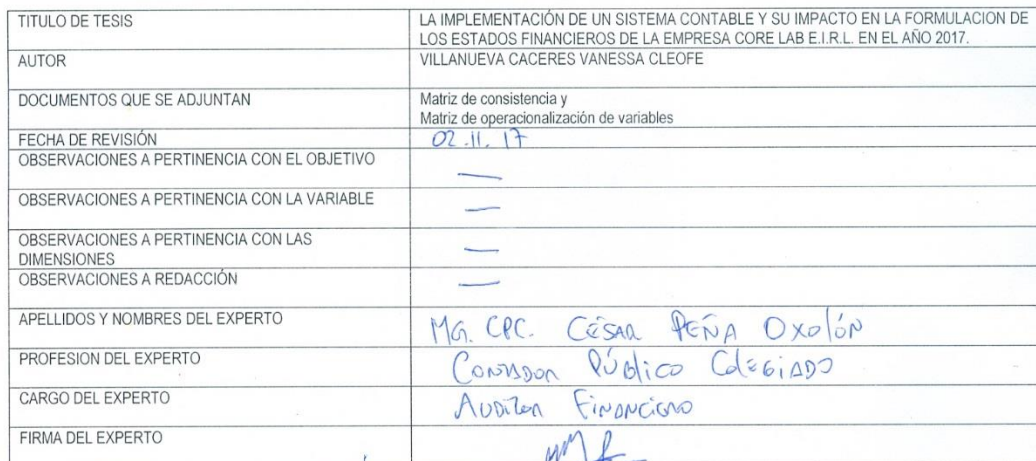 TITULO DE TESIS
LA IMPLEMENTACIÓN DE UN SISTEMA CONTABLE Y SU IMPACTO EN LA FORMULACION DE
LOS ESTADOS FINANCIEROS DE LA EMPRESA CORE LAB E.I.R.L. EN EL AÑO 2017.
AUTOR
VILLANUEVA CACERES VANESSA CLEOFE
DOCUMENTOS QUE SE ADJUNTAN
Matriz de consistencia y
Matriz de operacionalización de variables
FECHA DE REVISIÓN
02.11.17
OBSERVACIONES A PERTINENCIA CON EL OBJETIVO
—
OBSERVACIONES A PERTINENCIA CON LA VARIABLE
—
OBSERVACIONES A PERTINENCIA CON LAS
DIMENSIONES
—
OBSERVACIONES A REDACCIÓN
—
APELLIDOS Y NOMBRES DEL EXPERTO
MG. CPC. CÉSAR PEÑA OXOLÓN
PROFESION DEL EXPERTO
CONTADOR PÚBLICO COLEGIADO
CARGO DEL EXPERTO
AUDITOR FINANCIERO
FIRMA DEL EXPERTO